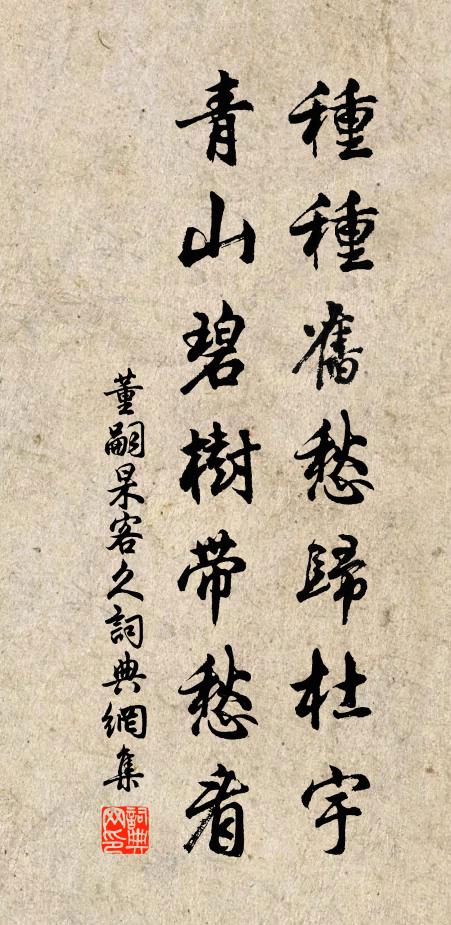 種種舊愁歸杜宇
青山碧樹帶愁看
董嗣杲客久詞典網集
詞典网印